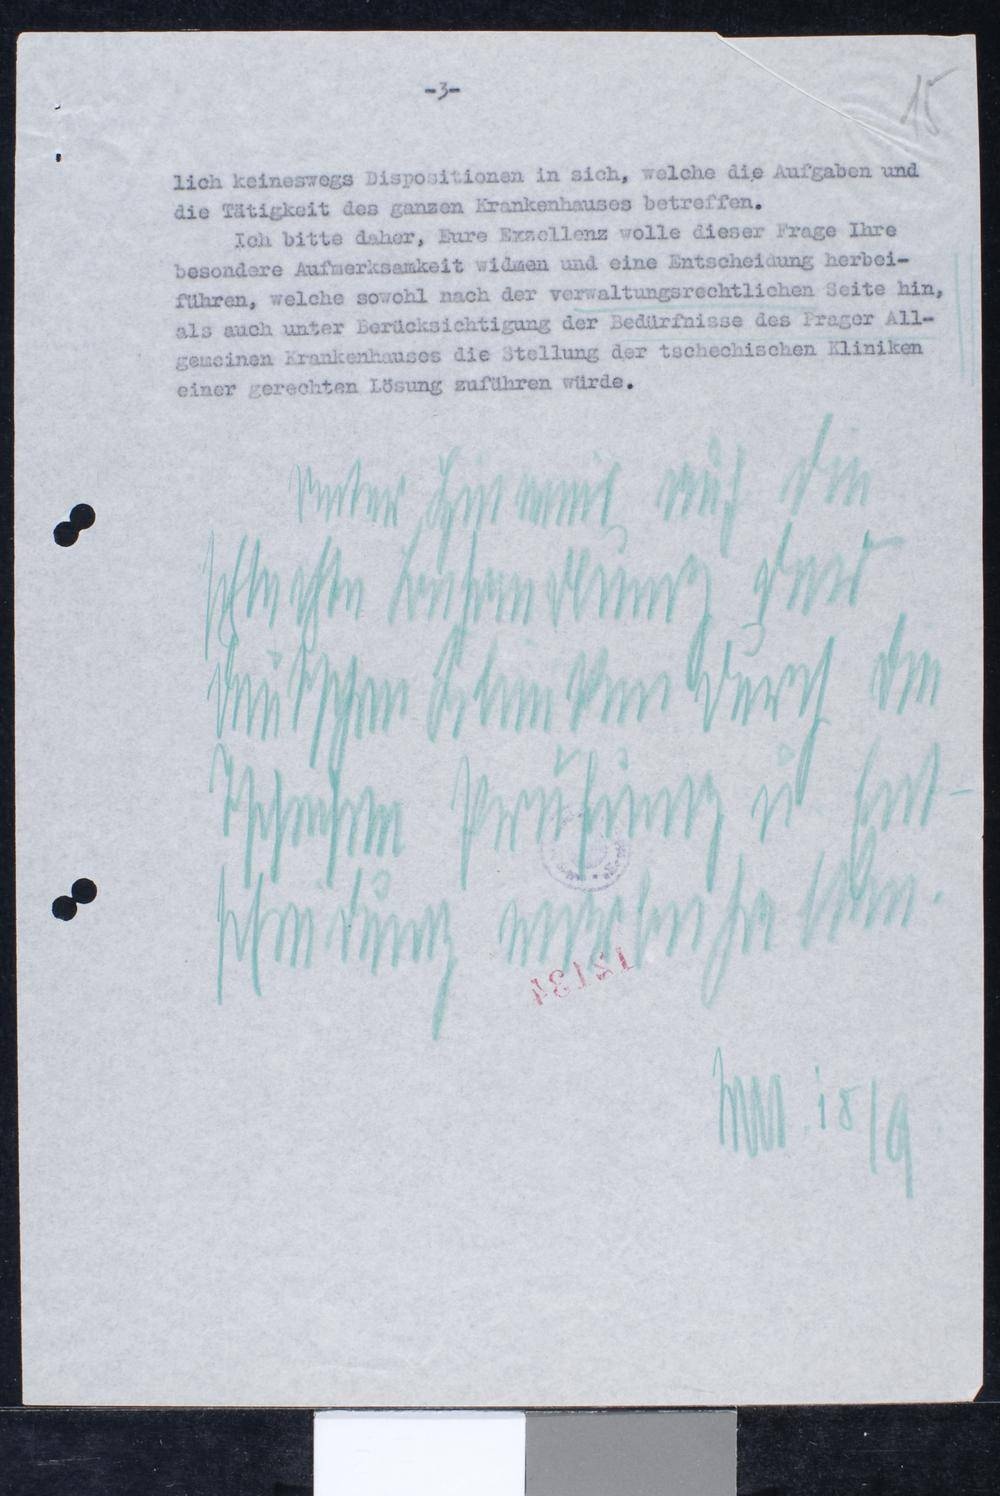 -3-
15
lich keineswegs Dispositionen in sich, welche die Aufgaben und
die Tätigkeit des ganzen Krankenhauses betreffen.
Ich bitte daher, Eure Exzellenz wolle dieser Frage Ihre
besondere Aufmerksamkeit widmen und eine Entscheidung herbei-
führen, welche sowohl nach der verwaltungsrechtlichen Seite hin,
als auch unter Berücksichtigung der Bedürfnisse des Prager All-
gemeinen Krankenhauses die Stellung der tschechischen Kliniken
einer gerechten Lösung zuführen würde.
unter Hinweis auf die
schlechte Behandlung der
deutschen Kliniken durch die
Tschechen Prüfung u Ent-
scheidung
12134
18/9